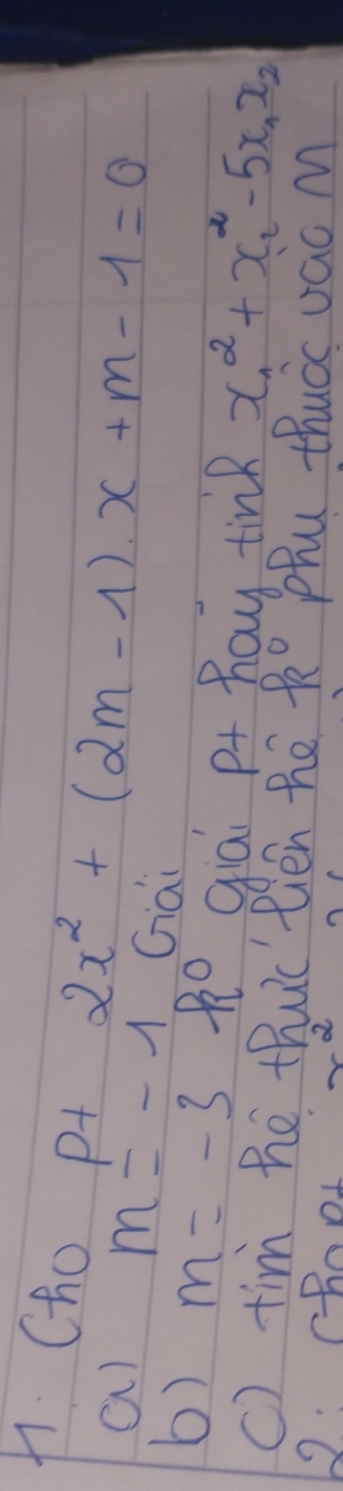 1. Cho pt 2x² + (2m - 1).x + m - 1 = 0
a) m = - 1 Giải
b) m = - 3 ko giải pt hãy tính x₁² + x₂² - 5x₁x₂
c) tìm hệ thức liên hệ ko phụ thuộc vào m
2. Cho pt x²